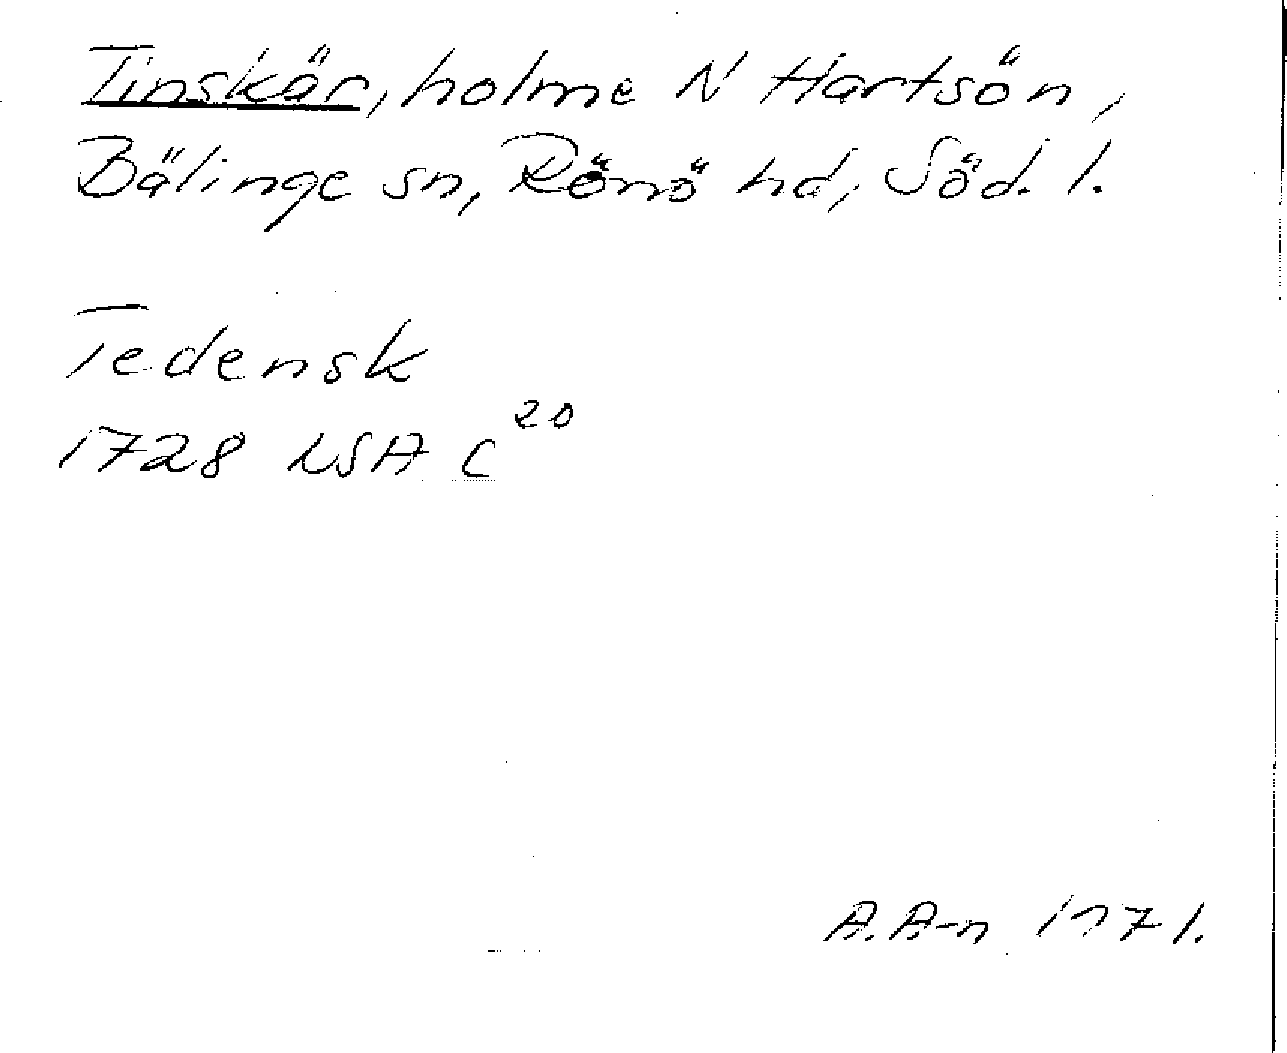 Tinskär, holme N Hartsön,
Bälinge sn, Rönö hd, Söd. l.
Tedensk
1728 LSA C 20
A.A-n 1971.